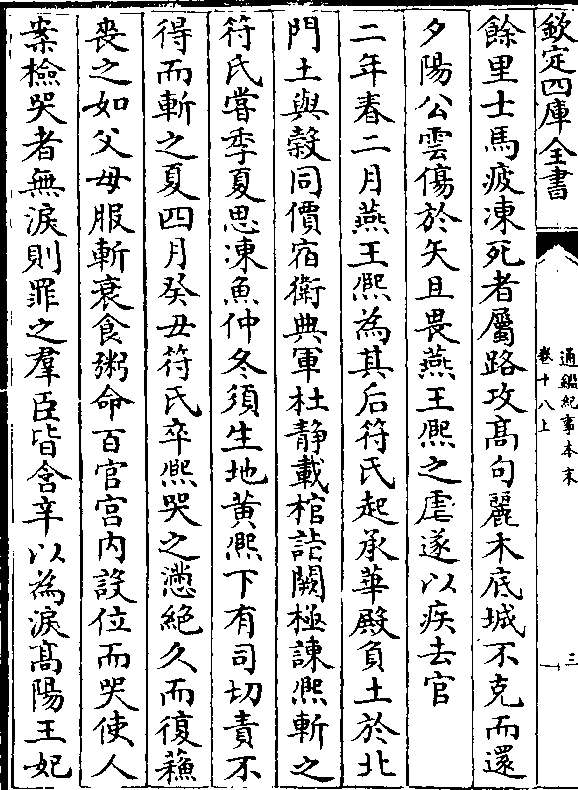 欽定四庫全書
通鑑紀事本末
卷十八上
三
餘里士馬疲凍死者屬路攻髙句麗木底城不克而還
夕陽公雲傷於矢且畏燕王熙之虐遂以疾去官
二年春二月燕王熙為其后符氏起承華殿負土於北
門土與穀同價宿衛典軍杜静載棺詣闕極諫熙斬之
符氏嘗季夏思凍魚仲冬須生地黄熙下有司切責不
得而斬之夏四月癸丑符氏卒熙哭之懣絶久而復蘓
喪之如父母服斬衰食粥命百官宫内設位而哭使人
案檢哭者無淚則罪之羣臣皆含辛以為淚髙陽王妃